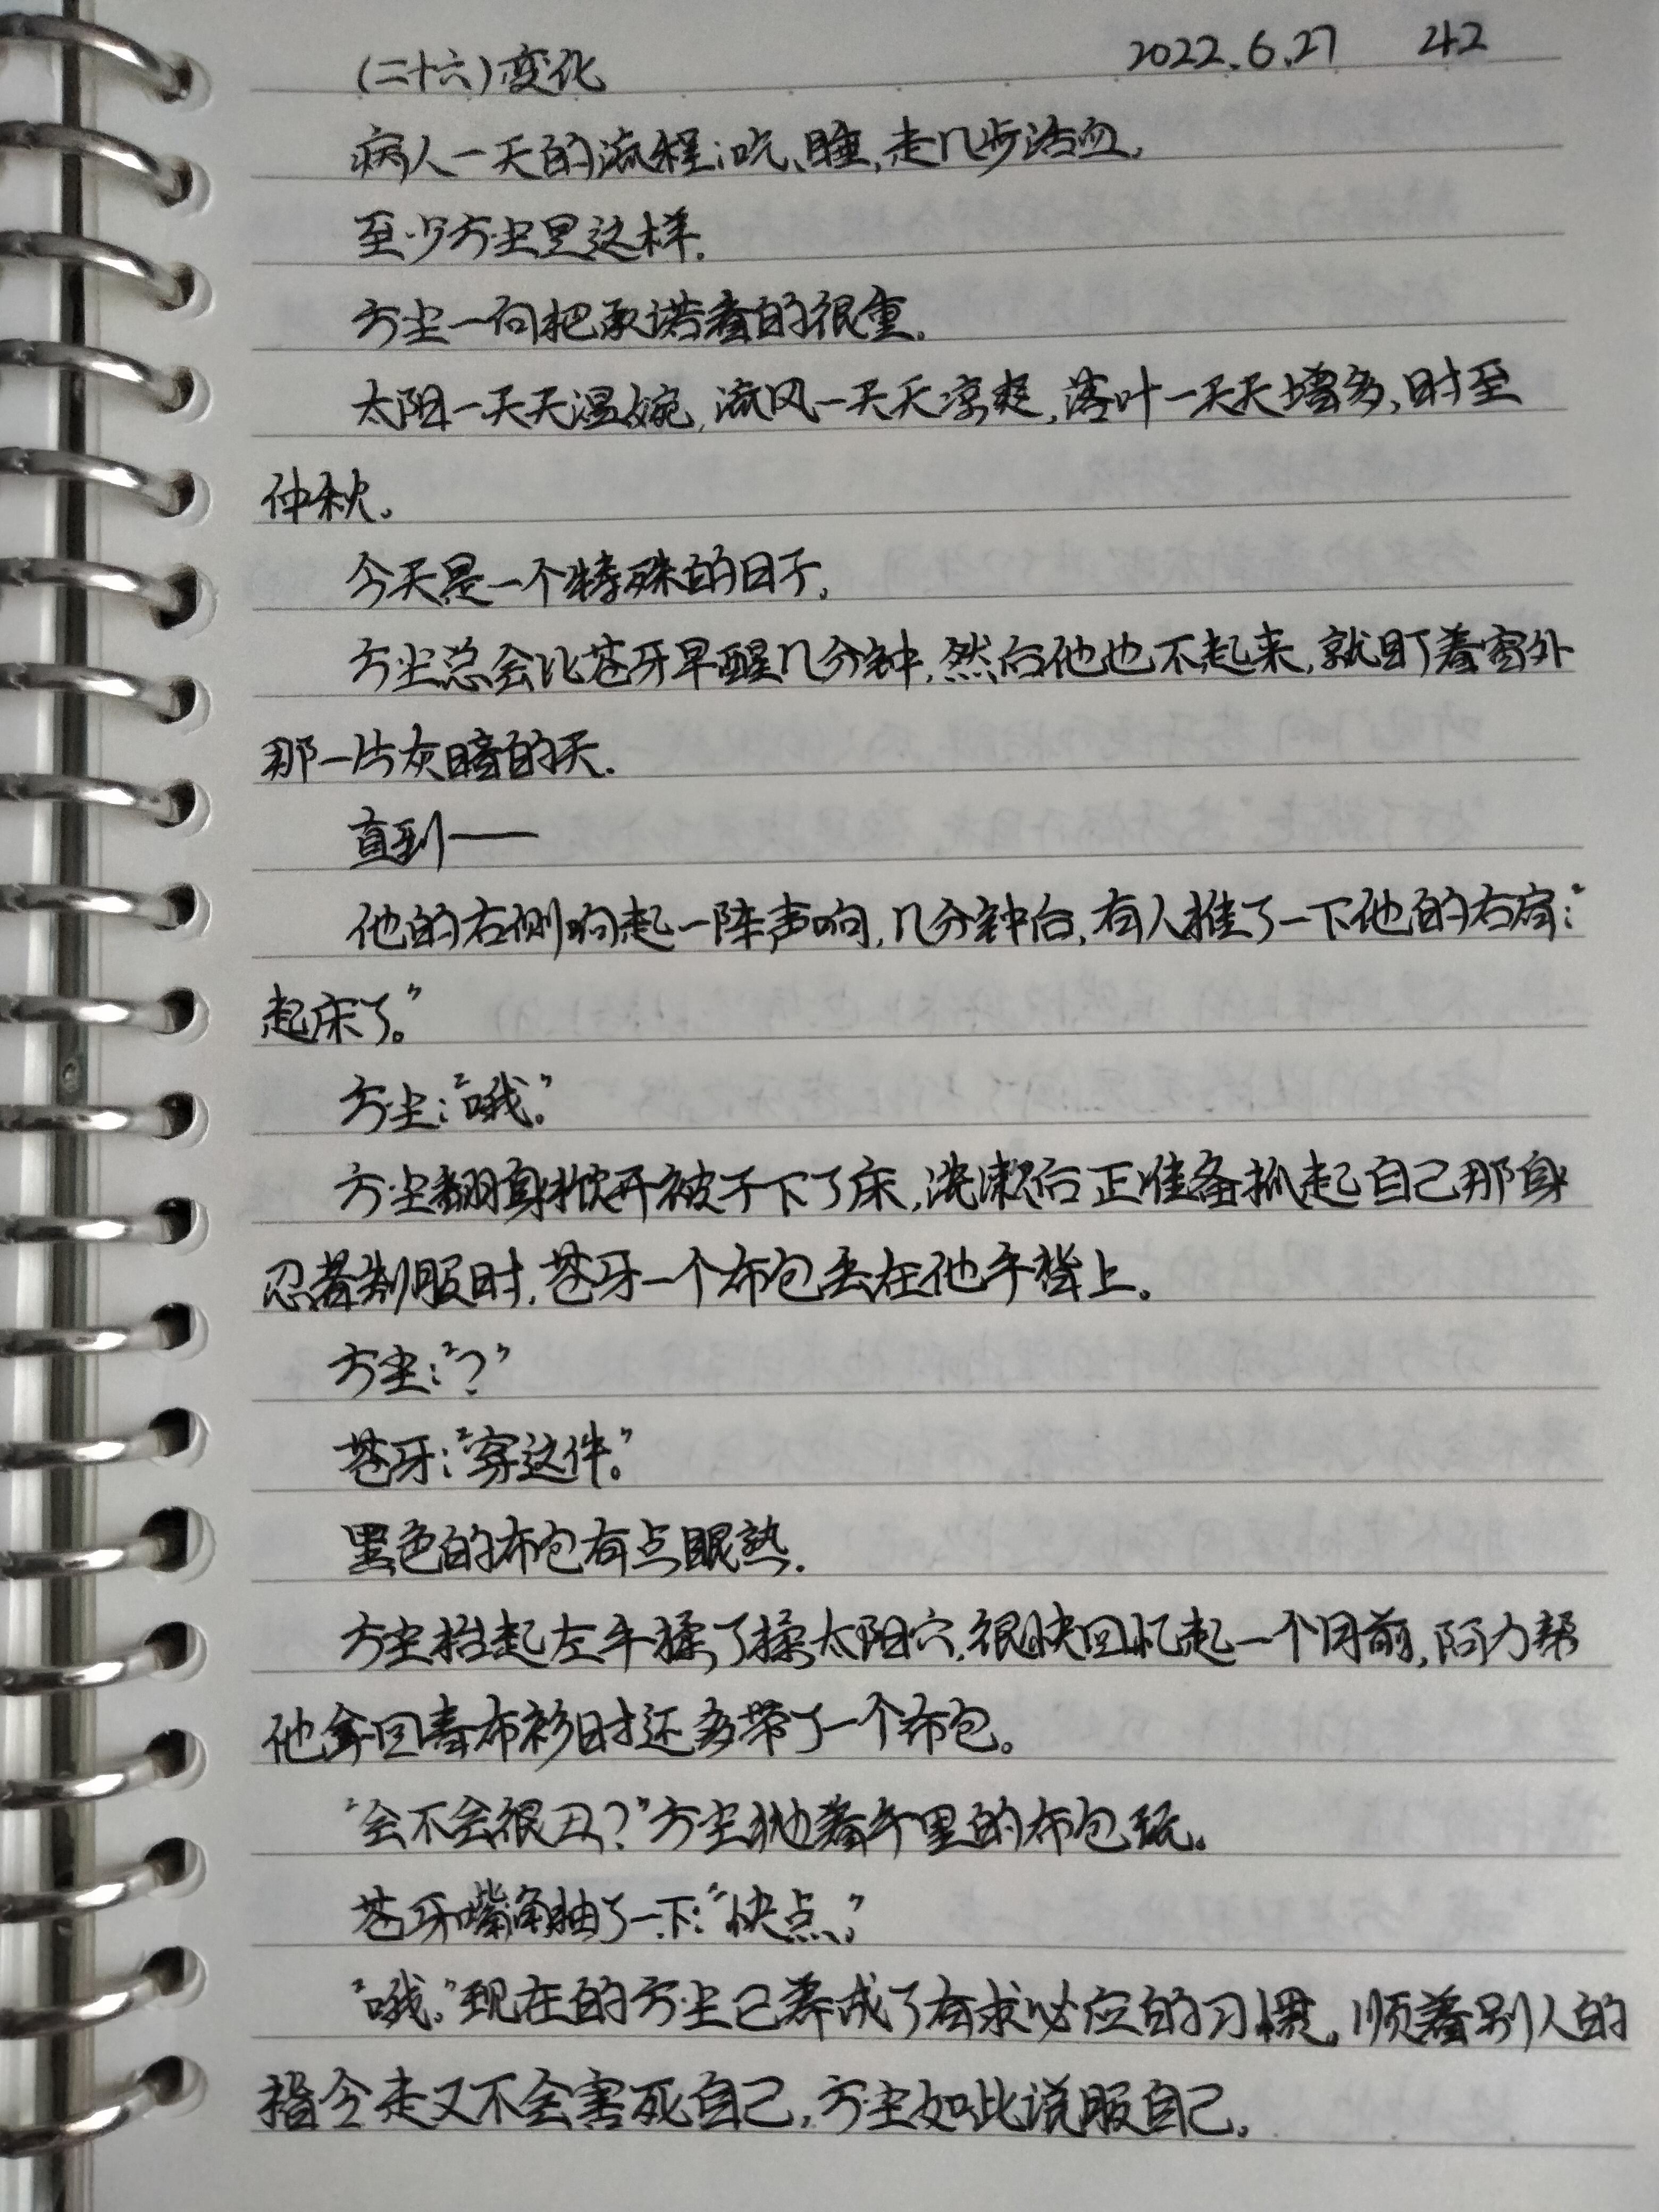 (二十六)变化 2022.6.27 42
病人一天的流程:吃、睡,走几步活血。
至少方尘是这样.
方尘一向把承诺看的很重。
太阳一天天温婉,流风一天天凉爽,落叶一天天增多,时至
仲秋。
今天是一个特殊的日子。
方尘总会比苍牙早醒几分钟,然后他也不起来,就盯着窗外
那一片灰暗的天.
直到——
他的右侧响起一阵声响,几分钟后,有人推了一下他的右肩:“
起床了。”
方尘:“哦。”
方尘翻身掀开被子下了床,洗漱后正准备抓起自己那身
忍者制服时,苍牙一个布包丢在他手背上。
方尘:“?”
苍牙:“穿这件。”
黑色的布包有点眼熟.
方尘抬起左手揉了揉太阳穴,很快回忆起一个月前,阿力帮
他拿回青布衫时还多带了一个布包。
“会不会很丑?”方尘抛着手里的布包玩。
苍牙嘴角抽了一下:“快点。”
“哦。”现在的方尘已养成了有求必应的习惯。顺着别人的
指令走又不会害死自己,方尘如此说服自己。